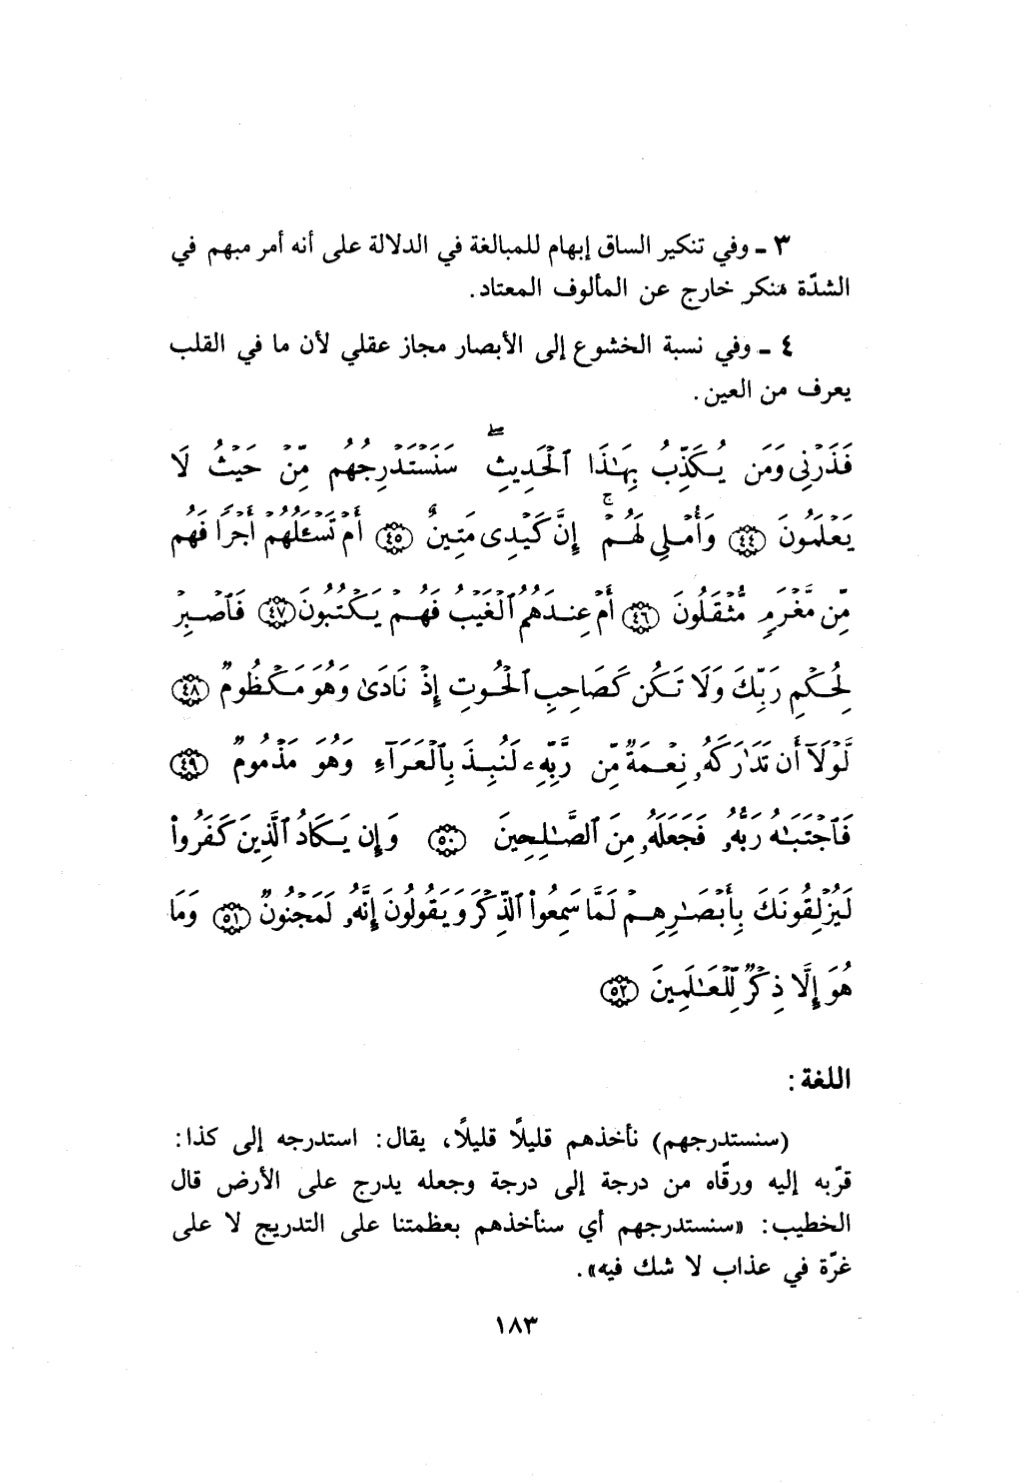 ٣ ـ وفي تنكير الساق إبهام للمبالغة في الدلالة على أنه أمر مبهم في
الشدّة منكر خارج عن المألوف المعتاد.
٤ ـ وفي نسبة الخشوع إلى الأبصار مجاز عقلي لأن ما في القلب
يعرف من العين.
فَذَرْنِى وَمَن يُكَذِّبُ بِهَـٰذَا ٱلْحَدِيثِ ۖ سَنَسْتَدْرِجُهُم مِّنْ حَيْثُ لَا
يَعْلَمُونَ ﴿٤٤﴾ وَأُمْلِى لَهُمْ ۚ إِنَّ كَيْدِى مَتِينٌ ﴿٤٥﴾ أَمْ تَسْـَٔلُهُمْ أَجْرًا فَهُم
مِّن مَّغْرَمٍ مُّثْقَلُونَ ﴿٤٦﴾ أَمْ عِندَهُمُ ٱلْغَيْبُ فَهُمْ يَكْتُبُونَ ﴿٤٧﴾ فَٱصْبِرْ
لِحُكْمِ رَبِّكَ وَلَا تَكُن كَصَاحِبِ ٱلْحُوتِ إِذْ نَادَىٰ وَهُوَ مَكْظُومٌ ﴿٤٨﴾
لَّوْلَآ أَن تَدَٰرَكَهُۥ نِعْمَةٌ مِّن رَّبِّهِۦ لَنُبِذَ بِٱلْعَرَآءِ وَهُوَ مَذْمُومٌ ﴿٤٩﴾
فَٱجْتَبَـٰهُ رَبُّهُۥ فَجَعَلَهُۥ مِنَ ٱلصَّـٰلِحِينَ ﴿٥٠﴾ وَإِن يَكَادُ ٱلَّذِينَ كَفَرُوا۟
لَيُزْلِقُونَكَ بِأَبْصَـٰرِهِمْ لَمَّا سَمِعُوا۟ ٱلذِّكْرَ وَيَقُولُونَ إِنَّهُۥ لَمَجْنُونٌ ﴿٥١﴾ وَمَا
هُوَ إِلَّا ذِكْرٌ لِّلْعَـٰلَمِينَ ﴿٥٢﴾
اللغة:
(سنستدرجهم) نأخذهم قليلًا قليلًا، يقال: استدرجه إلى كذا:
قرّبه إليه ورقّاه من درجة إلى درجة وجعله يدرج على الأرض قال
الخطيب: «سنستدرجهم أي سنأخذهم بعظمتنا على التدريج لا على
غرّة في عذاب لا شك فيه».
١٨٣